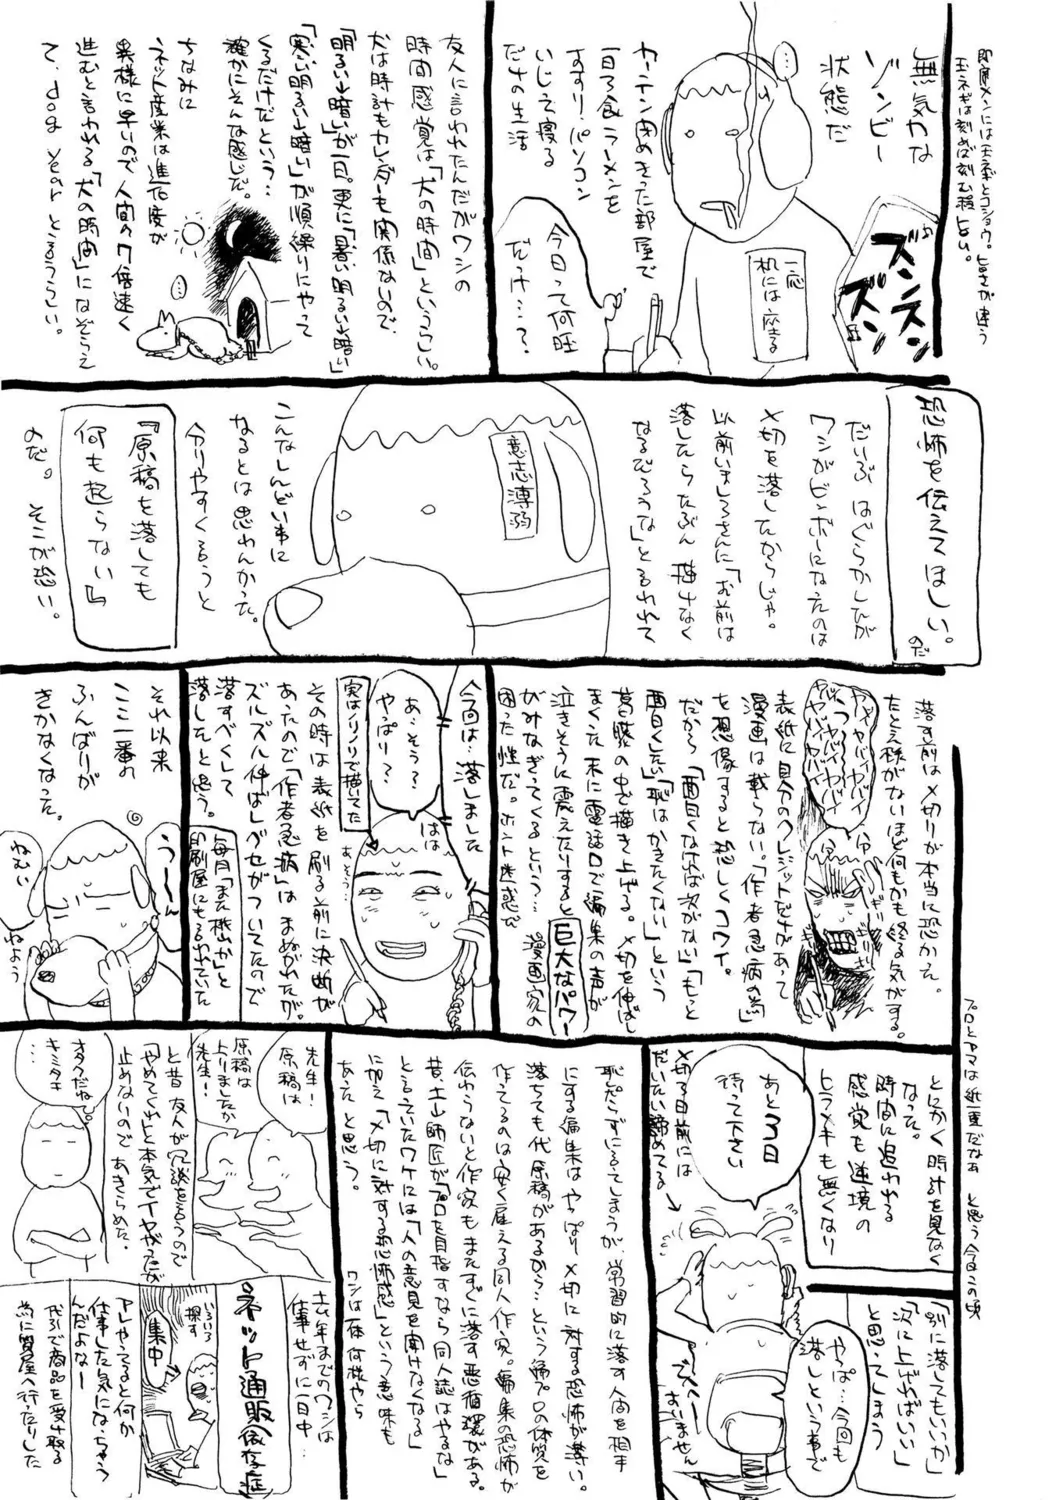 即席メンには玉ネギとコショウ。旨さが違う
玉ネギは刻めば刻む程旨い。
無気力な
ゾンビー
状態だ
…
ズンズン
ズン
一応
机には座る
カーテン閉めきった部屋で
一日一食ラーメンを
すすり、パソコン
いじって寝る
だけの生活
今日って何旺
だっけ…？
友人に言われたんだがワシの
時間感覚は「犬の時間」というらしい。
犬は時計もカレンダーも関係ないので、
「明るい↓暗い」が一日。更に「暑い明るい↓暗い」
「寒い明るい↓暗い」が順繰りにやって
くるだけだという…
確かにそんな感じだ。
ちなみに
ネット産業は進化度が
異様に早いので人間の7倍速く
進むと言われる「犬の時間」になぞらえ
て、dog yearとゆうらしい。
…
恐怖を伝えてほしい。
のだ
だいぶはぐらかしたが
ワシがビンボーになったのは
〆切を落したからじゃ。
以前いましろさんに「お前は
落したらたぶん描けなく
なるだろうな」と言われて
意志薄弱
こんなしんどい事に
なるとは思わんかった。
分りやすくゆうと
『原稿を落しても
何も起らない』
のだ。そこが恐い。
落す前は〆切りが本当に恐かった。
たとえ様がないほど何もかも終る気がする。
ヤバイヤバイヤバイ
表紙に自分のクレジットだけがあって
漫画は載らない。「作者急病の為」
を想像すると恐しくコワイ。
だから「面白くなければ次がない」「もっと
面白くしたい」「恥はかきたくない」という
葛藤の中で描き上げる。〆切を伸ばし
まくった末に電話口で編集の声が
泣きそうに震えたりすると巨大なパワー
がみなぎってくるという…漫画家の
困った性だ。ホント迷惑な
今回は…落しました
あ、そう？
やっぱり？
はは
あ、そう…
実はノリノリで描いてた
その時は表紙を刷る前に決断が
あったので「作者急病」はまぬがれたが。
ズルズル伸ばしグセがついてたので
落すべくして
落したと思う。
毎月「また桃山か」と
印刷屋にも言われていた
それ以来
ここ一番の
ふんばりが
きかなくなった。
う～～ん
ねむい
ねよう
プロとアマは紙一重だなあ　と思う今日この頃
とにかく時計を見なく
なった。
時間に追われる
感覚も逆境の
ヒラメキも無くなり
あと3日
待って下さい
〆切3日前には
だいたい諦めてる
「別に落してもいいか」
「次に上げればいい」
と思ってしまう
やっぱ…今回も
落しという事で
おいません
恥だらずにゆってしまうが、常習的に落す人間を相手
にする編集はやっぱり〆切に対する恐怖が薄い。
落ちても代原稿があるから…という編プロの体質を
作ってるのは安く雇える同人作家。編集の恐怖が
伝わらないと作家もまたすぐに落す悪循環がある。
昔、土山師匠が「プロを目指すなら同人誌はやるな」
と言っていたワケには「人の意見を聞けなくなる」
に加え「〆切に対する恐怖感」という意味も
あったと思う。
ワシは一体何様やら
先生！
原稿は
原稿は
上りましたか
先生！
と昔友人が冗談を言うので
「やめてくれ」と本気でイヤがったが
止めないのであきらめた。
オタクだねて
キミタキ
…
去年までのワシは
仕事せずに一日中
ネット通販依存症
いろいろ
探す
集中
アレやってると何か
仕事した気になっちゃう
んだよなー
代引で商品を受け取る
為に質屋へ行たりした